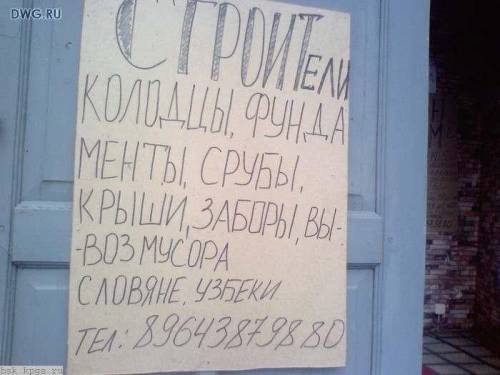 DWG.RU
СТРОИТЕЛИ
КОЛОДЦЫ, ФУНДА
МЕНТЫ, СРУБЫ,
КРЫШИ, ЗАБОРЫ, ВЫ-
-ВОЗ МУСОРА
СЛОВЯНЕ, УЗБЕКИ
ТЕЛ: 89643879880
bsk.kpga.ru